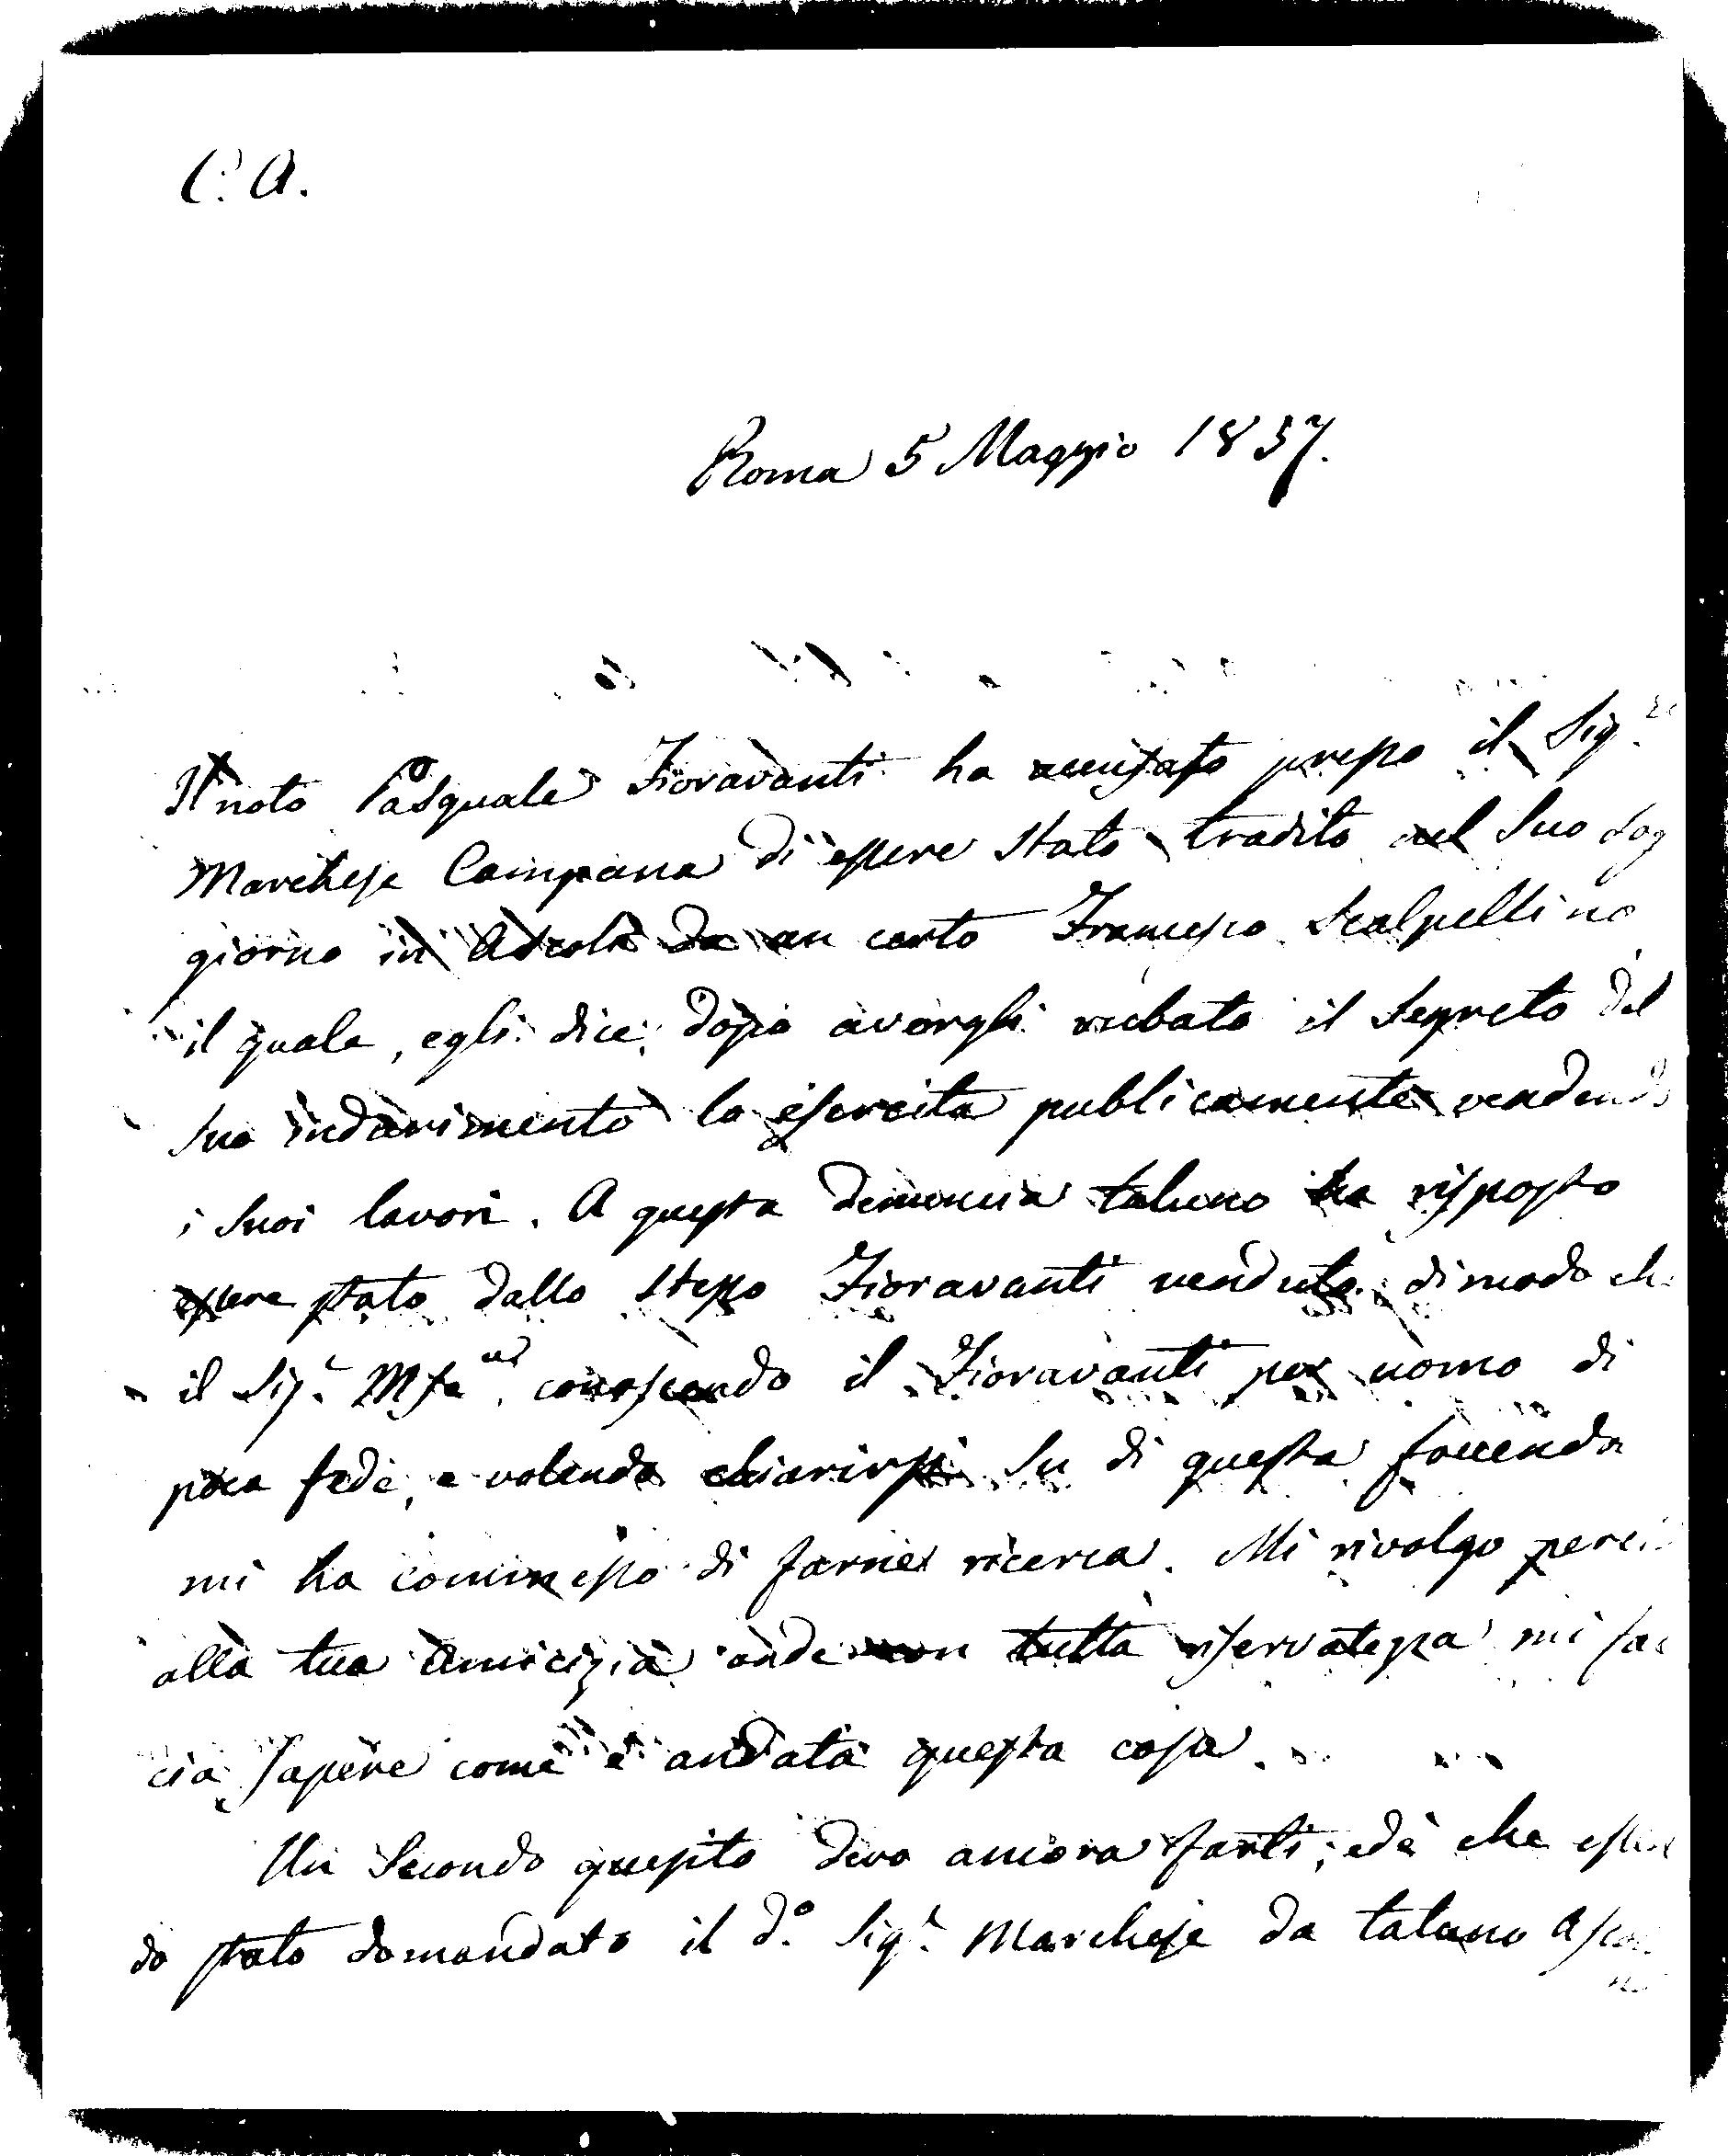 C. A.
Roma 5 Maggio 1837.
Il noto Pasquale Fioravanti ha accusato presso il Sig.re
Marchese Campana di essere stato tradito nel suo sog
giorno in Ascoli da un certo Francesco Scalpellino
il quale, egli dice, dopo avergli rubato il segreto del
suo indurimento lo esercita publicamente vendendo
i suoi lavori. A questa denuncia taluno ha risposto
essere stato dallo stesso Fioravanti venduto: dimodo che
il Sig.r conoscendo il Fioravanti per uomo di
poca fede, e volendo chiarirsi su di questa faccenda
mi ha commesso di farne ricerca. Mi rivolgo perciò
alla tua amicizia onde con tutta riservatezza mi fac
cia sapere come è andata questa cosa.
Un secondo quesito devo ancora farti; ed è che essen
do stato domandato il d.o Sig.r Marchese da taluno Ascola
no